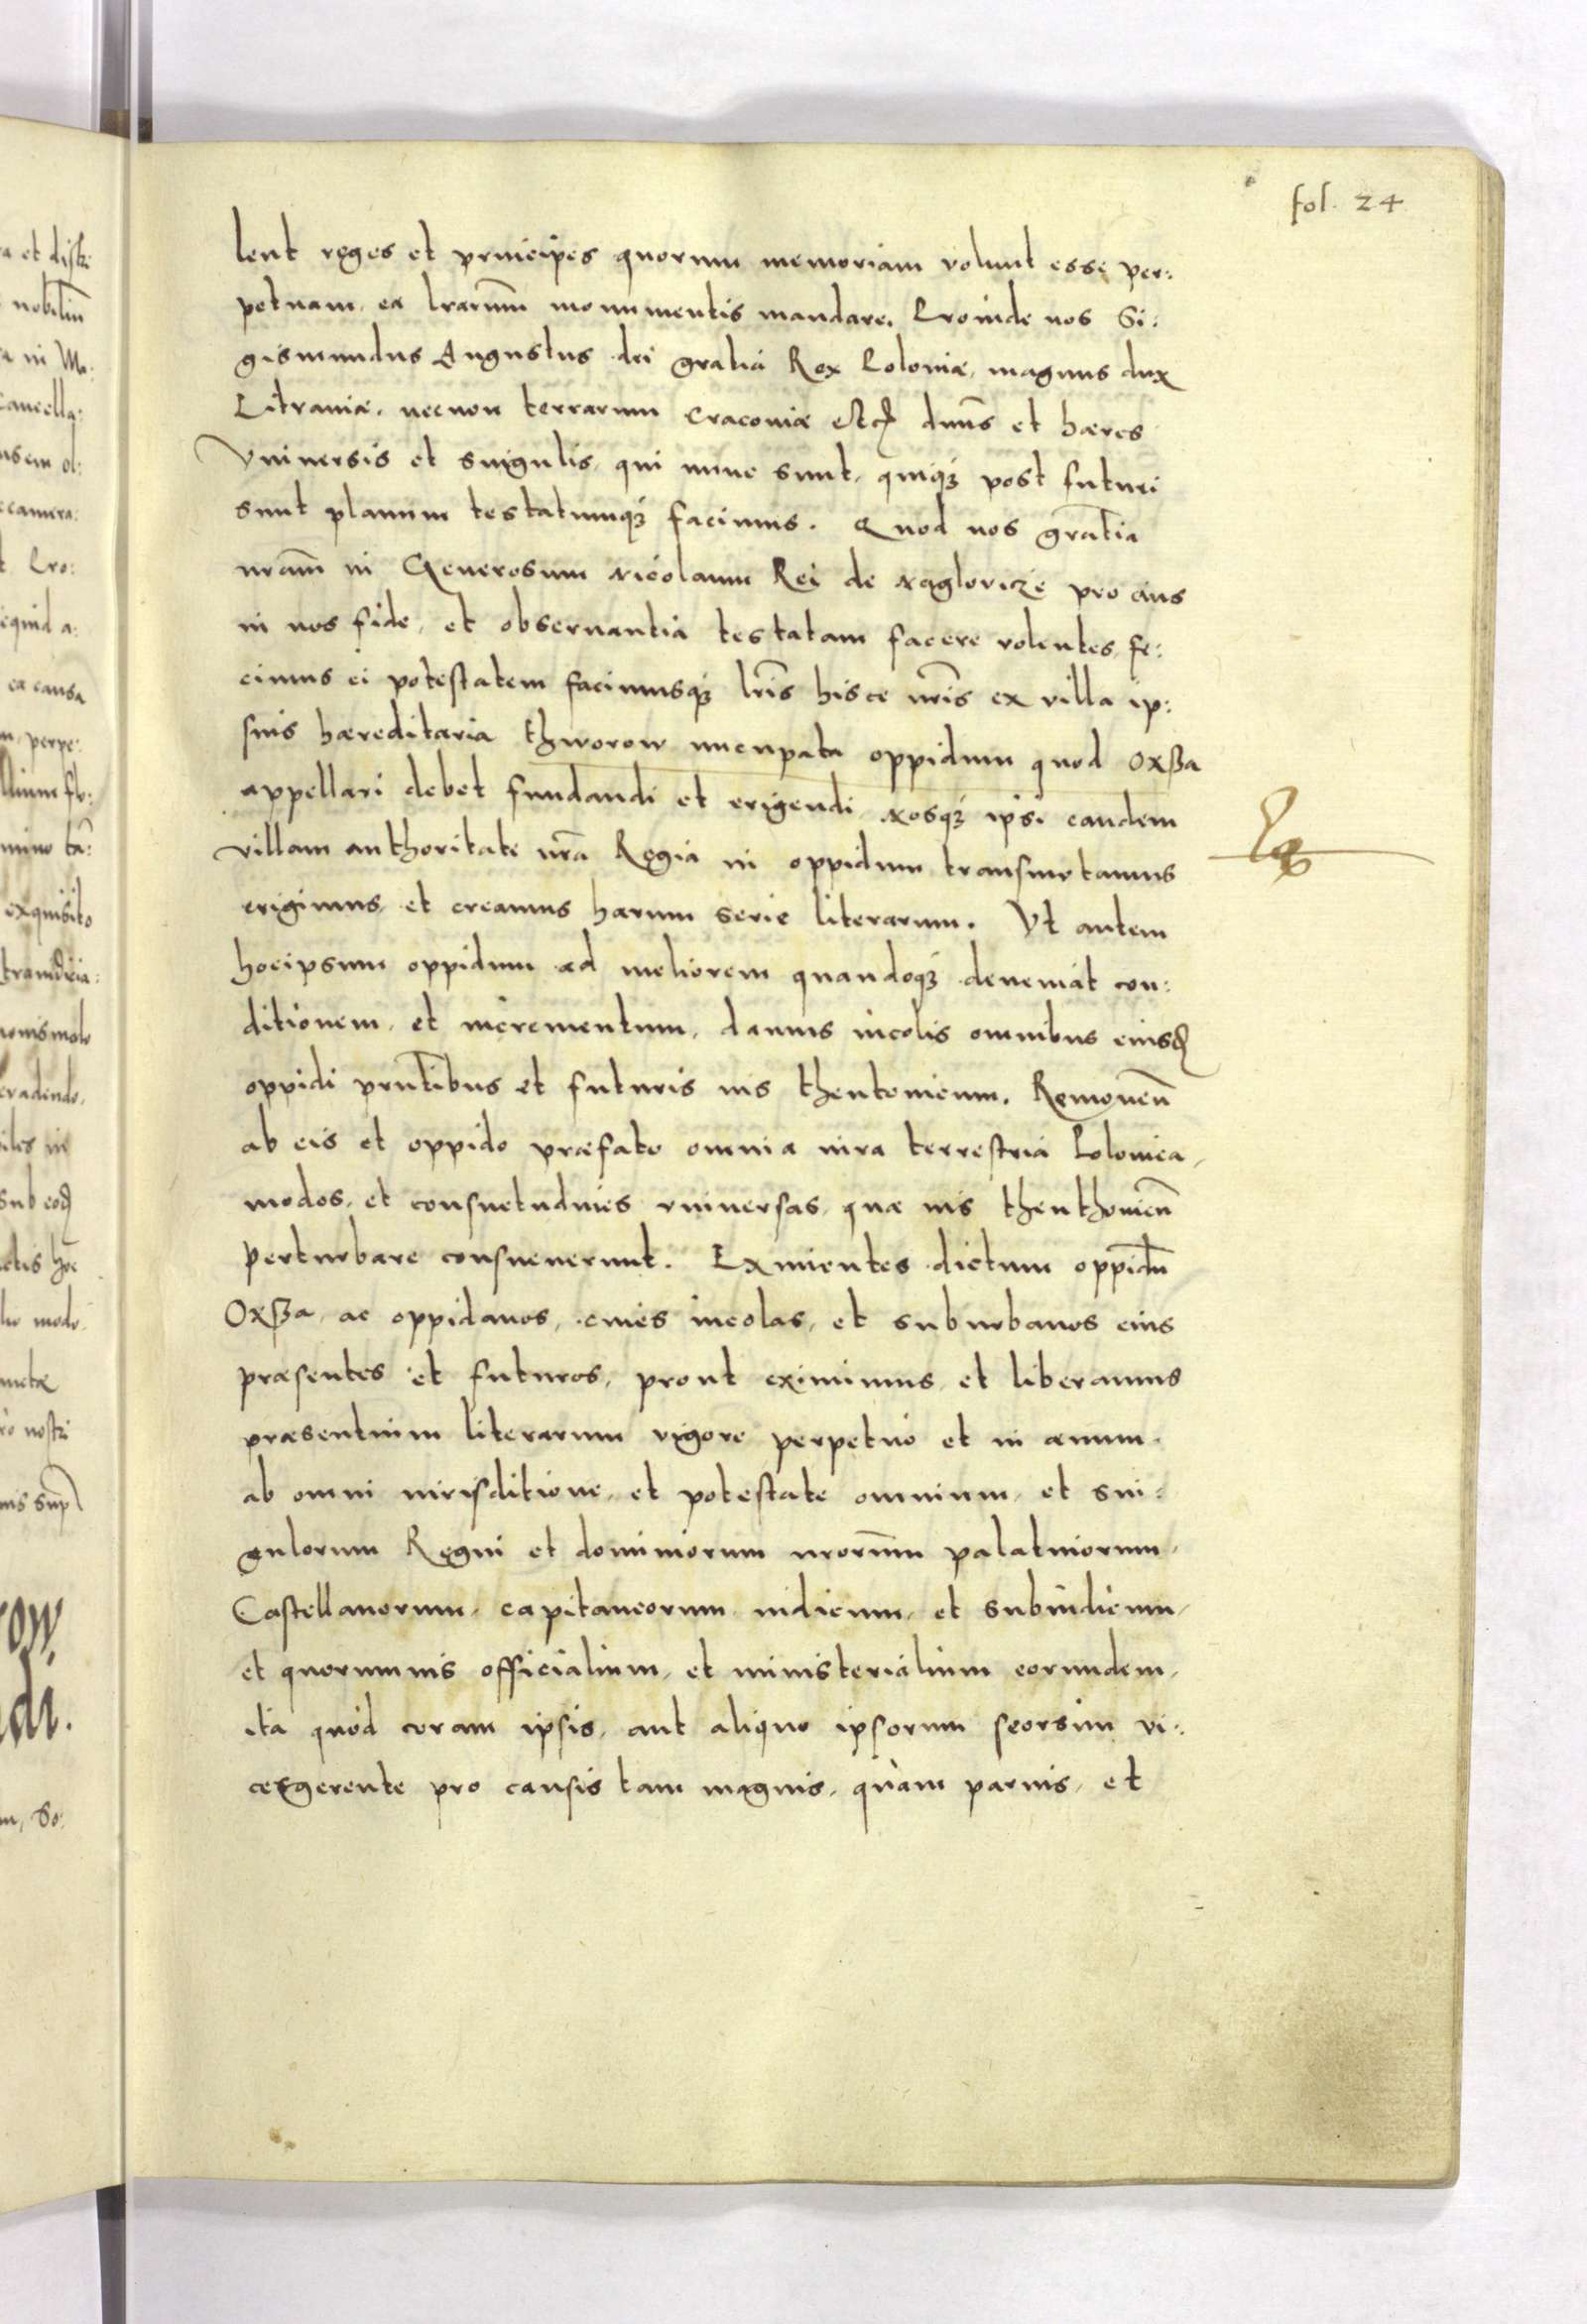 fol. 24
lent reges et principes quorum memoriam volunt esse per:
petuam, ea lrarum monumentis mandare. Proinde nos Si:
gismundus Augustus dei gratia Rex Poloniæ, magnus dux
Litvaniæ, necnon terrarum Cracoviæ etc dnus et hæres
Universis et singulis, qui nunc sunt, quiqȝ post futuri
sunt planum testatumqȝ facimus. Quod nos gratia
nram in Generosum Nicolaum Rei de Naglovicze pro eius
in nos fide, et observantia testatam facere volentes, fe:
cimus ei potestatem facimusqȝ lris hisce nris ex villa ip:
sius hæreditaria Thworow nucupata oppidum quod Oxßa
appellari debet fundandi et erigendi, Nosqȝ ipsi eandem
villam authoritate nra Regia in oppidum transmutamus
erigimus, et creamus harum serie literarum. Ut autem
hocipsum oppidum ad meliorem quandoqȝ deveniat con:
ditionem, et incrementum, damus incolis omnibus eiusd
oppidi pnntibus et futuris ius theutonicum. Removen
ab eis et oppido præfato omnia iura terrestria Polonica,
modos, et consuetudines universas, quæ ius theuthonicu
perturbare consueverunt. Eximentes dictum oppidu
Oxßa, ac oppidanos, cives incolas, et suburbanos eius
præsentes et futuros, prout eximimus, et liberamus
præsentium literarum vigore perpetuo et in ævum,
ab omni iurisditione, et potestate omnium, et sin:
gulorum Regni et dominiorum nrorum palatinorum,
Castellanorum, capitaneorum iudicum, et subiudicum,
et quorumvis officialium, et ministerialium eorundem,
ita quod coram ipsis, aut aliquo ipsorum seorsim vi:
cesgerente pro causis tam magnis, quàm parvis, et